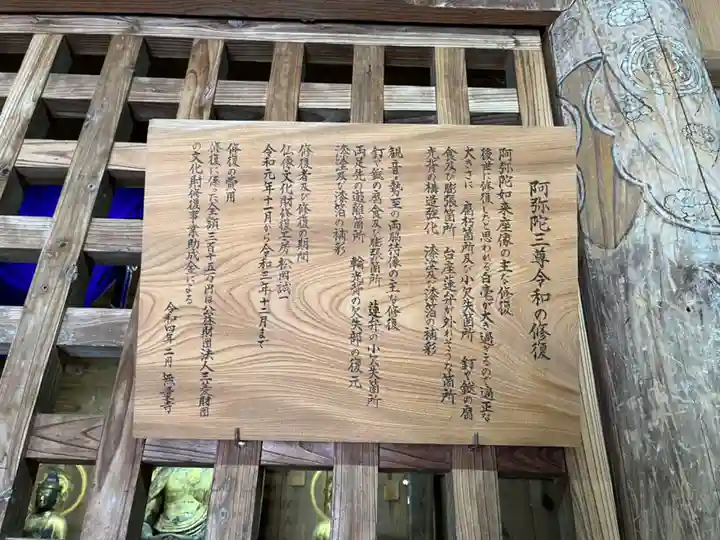 阿弥陀三尊令和の修復
阿弥陀如来座像の主な修復
後世に修復したと思われる白毫が大き過ぎるので適正な
大きさに 腐朽箇所及び小欠失箇所 釘や鎹の腐
食及び膨張箇所 台座蓮弁が外れそうな箇所
光背の構造強化 漆塗及び漆箔の補彩
観音・勢至の両脇侍像の主な修復
釘や鎹の腐食及び膨張箇所 蓮弁の小欠失箇所
両足先の遊離箇所 輪光背の欠失部の復元
漆塗及び漆箔の補彩
修復者及び修復の期間
仏像文化財修復工房 松岡誠一
令和元年十一月から令和三年十二月まで
修復の費用
修復に係った全額三百十五万円は公益財団法人三菱財団
の文化財修復事業助成金による
令和四年二月 無量寺